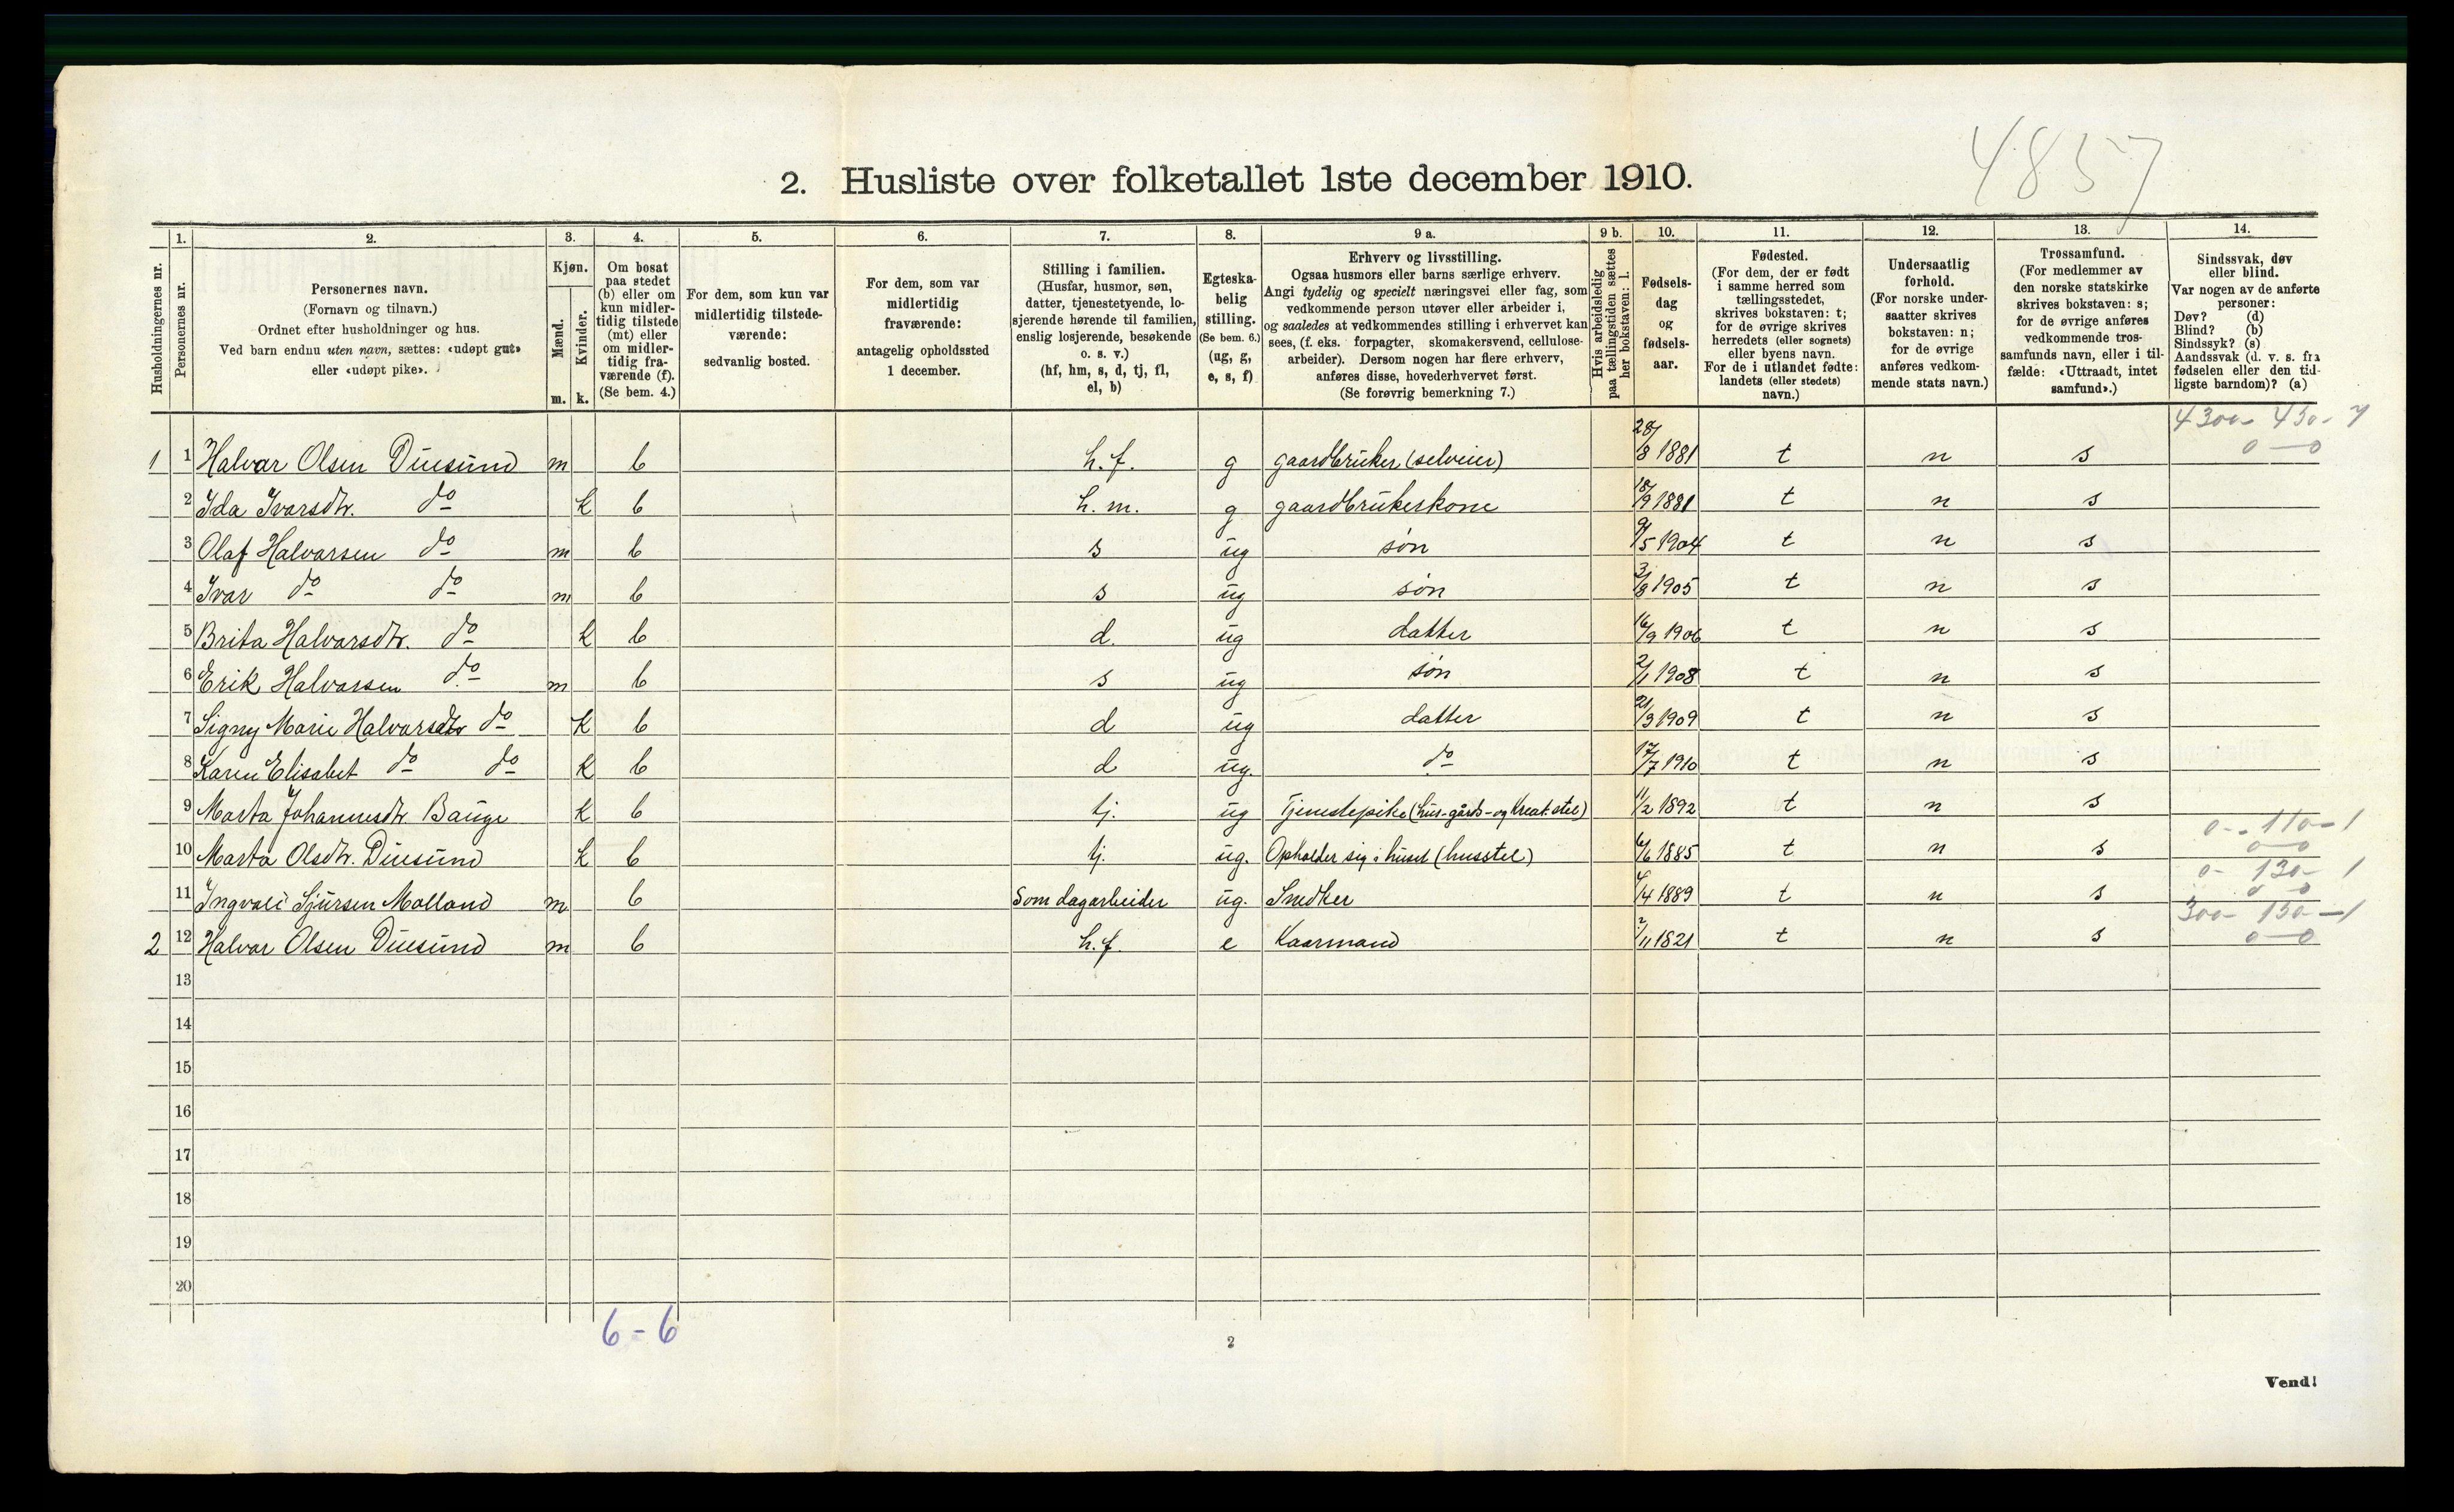 4857
2. Husliste over folketallet 1ste december 1910.
Husholdningernes nr.
1.
Personernes nr.
2.
Personernes navn.
(Fornavn og tilnavn.)
Ordnet efter husholdninger og hus.
Ved barn endnu uten navn, sættes: «udøpt gut»
eller «udøpt pike».
3.
Kjøn.
Mænd.
Kvinder.
m. k.
4.
Om bosat
paa stedet
(b) eller om
kun midler-
tidig tilstede
(mt) eller
om midler-
tidig fra-
værende (f).
(Se bem. 4.)
5.
For dem, som kun var
midlertidig tilstede-
værende:
sedvanlig bosted.
6.
For dem, som var
midlertidig
fraværende:
antagelig opholdssted
1 december.
7.
Stilling i familien.
(Husfar, husmor, søn,
datter, tjenestetyende, lo-
sjerende hørende til familien,
enslig losjerende, besøkende
o. s. v.)
(hf, hm, s, d, tj, fl,
el, b)
8.
Egteska-
belig
stilling.
(Se bem. 6.)
(ug, g,
e, s, f)
9 a.
Erhverv og livsstilling.
Ogsaa husmors eller barns særlige erhverv.
Angi tydelig og specielt næringsvei eller fag, som
vedkommende person utøver eller arbeider i,
og saaledes at vedkommendes stilling i erhvervet kan
sees, (f. eks. forpagter, skomakersvend, cellulose-
arbeider). Dersom nogen har flere erhverv,
anføres disse, hovederhvervet først.
(Se forøvrig bemerkning 7.)
9 b.
Hvis arbeidsledig
paa tællingstiden sættes
her bokstaven: l.
10.
Fødsels-
dag
og
fødsels-
aar.
11.
Fødested.
(For dem, der er født
i samme herred som
tællingsstedet,
skrives bokstaven: t;
for de øvrige skrives
herredets (eller sognets)
eller byens navn.
For de i utlandet fødte:
landets (eller stedets)
navn.)
12.
Undersaatlig
forhold.
(For norske under-
saatter skrives
bokstaven: n;
for de øvrige
anføres vedkom-
mende stats navn.)
13.
Trossamfund.
(For medlemmer av
den norske statskirke
skrives bokstaven: s;
for de øvrige anføres
vedkommende tros-
samfunds navn, eller i til-
fælde: «Uttraadt, intet
samfund».)
14.
Sindssvak, døv
eller blind.
Var nogen av de anførte
personer:
Døv? (d)
Blind? (b)
Sindssyk? (s)
Aandssvak (d. v. s. fra
fødselen eller den tid-
ligste barndom)? (a)
4300 - 450 - 7
1 1 Halvar Olsen Duesund m b h.f. g gaardbruker (selveier) 28/8 1881 t n s 0 — 0
2 Ida Ivarsdtr. do k b h.m. g gaardbrukerskone 18/9 1881 t n s
3 Olaf Halvarsen do m b s ug søn 9/5 1904 t n s
4 Ivar do do m b s ug søn 3/8 1905 t n s
5 Brita Halvarsdtr. do k b d. ug datter 16/9 1906 t n s
6 Erik Halvarsen do m b s ug søn 2/1 1908 t n s
7 Signy Marie Halvarsdtr do k b d ug datter 21/3 1909 t n s
8 Karen Elisabet do do k b d ug. do 17/7 1910 t n s
9 Marta Johannesdtr. Bauge k b tj. ug Tjenestepike (hus-gårds-og Kreat.stel) 11/2 1892 t n s
0 - 110 - 1
10 Marta Olsdtr. Duesund k b tj. ug. Opholder sig i huset (husstel) 6/6 1885 t n s 0 — 0
0 - 130 - 1
11 Ingvald Sjursen Molland m b Som dagarbeider ug. Snedker /4 1889 t n s 0 — 0
300 - 150 - 1
2 12 Halvar Olsen Duesund m b h.f. e Kaarmand 2/11 1821 t n s 0 — 0
13
14
15
16
17
18
19
20
6 - 6
2
Vend!